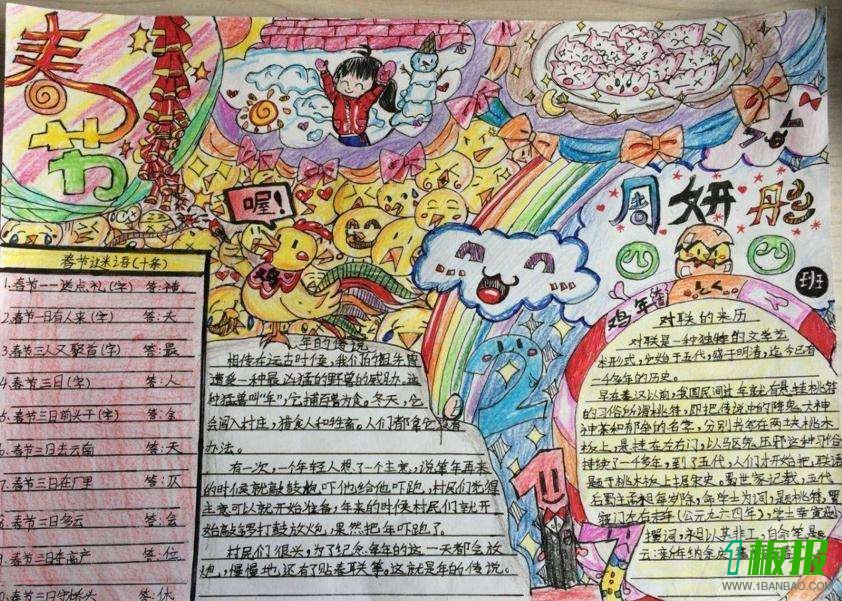 春节
喔!
周妍彤
班
鸡年
2017
春节谜语(十条)
1.春节一一送点礼(字) 答:
2.春节一日有人来(字) 答:夫
3.春节三人又聚首(字) 答:最
4.春节三日(字) 答:人
5.春节三日前头干(字) 答:全
春节三日去云南 答:天
春节三日在厂里 答:仄
春节三日多云 答:会
春节三日 高产 答:位
春节三日守桥头 答:休
年的传说
相传在远古时候,我们的祖先曾
遭受一种最凶猛的野兽的威胁。这
种猛兽叫“年”,它捕百兽为食。冬天,它
会闯入村庄,猎食人和牲畜。人们都拿它没有
办法。
有一次,一个年轻人想了一个主意,说等年再来
的时候就敲鼓 吓他给他吓跑,村民们觉得
主意可以就开始准备,年来的时候村民们就开
始敲锣打鼓放炮,果然把年吓跑了。
村民们很兴,为了纪念每年的这一天都会放
炮,慢慢地,还有了贴春联等。这就是年的传说。
对联的来历
对联是一种独特的文学艺
术形式,它始于五代,盛于明清,迄今已有
一千多年的历史。
早在秦汉以前,我国民间过年就有悬挂桃符
的习俗所谓桃符,即把传说中的降鬼大神
神荼和郁垒的名字,分别书写在两块桃木
板上,悬挂在左右门,以驱鬼压邪这种习俗
持续了一千多年,到了五代,人们才开始把联语
题于桃木板上据宋史。蜀世家记载,五代
后蜀主孟昶每岁除,年学士为词,题桃符,置
寝门左右末年(公元九六四年),学士幸寅逊
撰词,昶以其非工,自命笔题
云:新年纳余
1板报
WWW.1BANBAO.COM